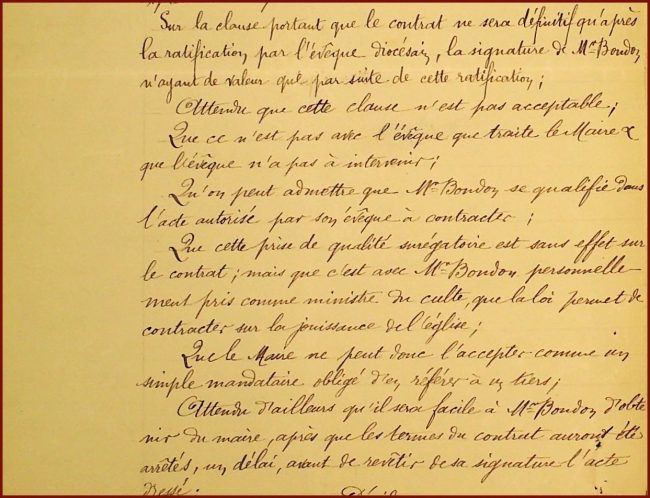 Sur la clause portant que le contrat ne sera définitif qu'après
la ratification, par l'évêque diocésain, la signature de Mr Bondon
n'ayant de valeur que par suite de cette ratification;
Attendu que cette clause n'est pas acceptable;
Que ce n'est pas avec l'évêque que traite le Maire &
que l'évêque n'a pas à intervenir;
Qu'on peut admettre que Mr Bondon se qualifie dans
l'acte autorisé par son évêque à contracter;
Que cette prise de qualité surégatoire est sans effet sur
le contrat; mais que c'est avec Mr Bondon personnelle-
ment pris comme ministre du culte, que la loi permet de
contracter sur la jouissance de l'église;
Que le Maire ne peut donc l'accepter comme un
simple mandataire obligé d'en référer à un tiers;
Attendu d'ailleurs qu'il sera facile à Mr Bondon d'obte
nir du maire, après que les termes du contrat auront été
arrêtés, un délai, avant de revêtir de sa signature l'acte
dressé.